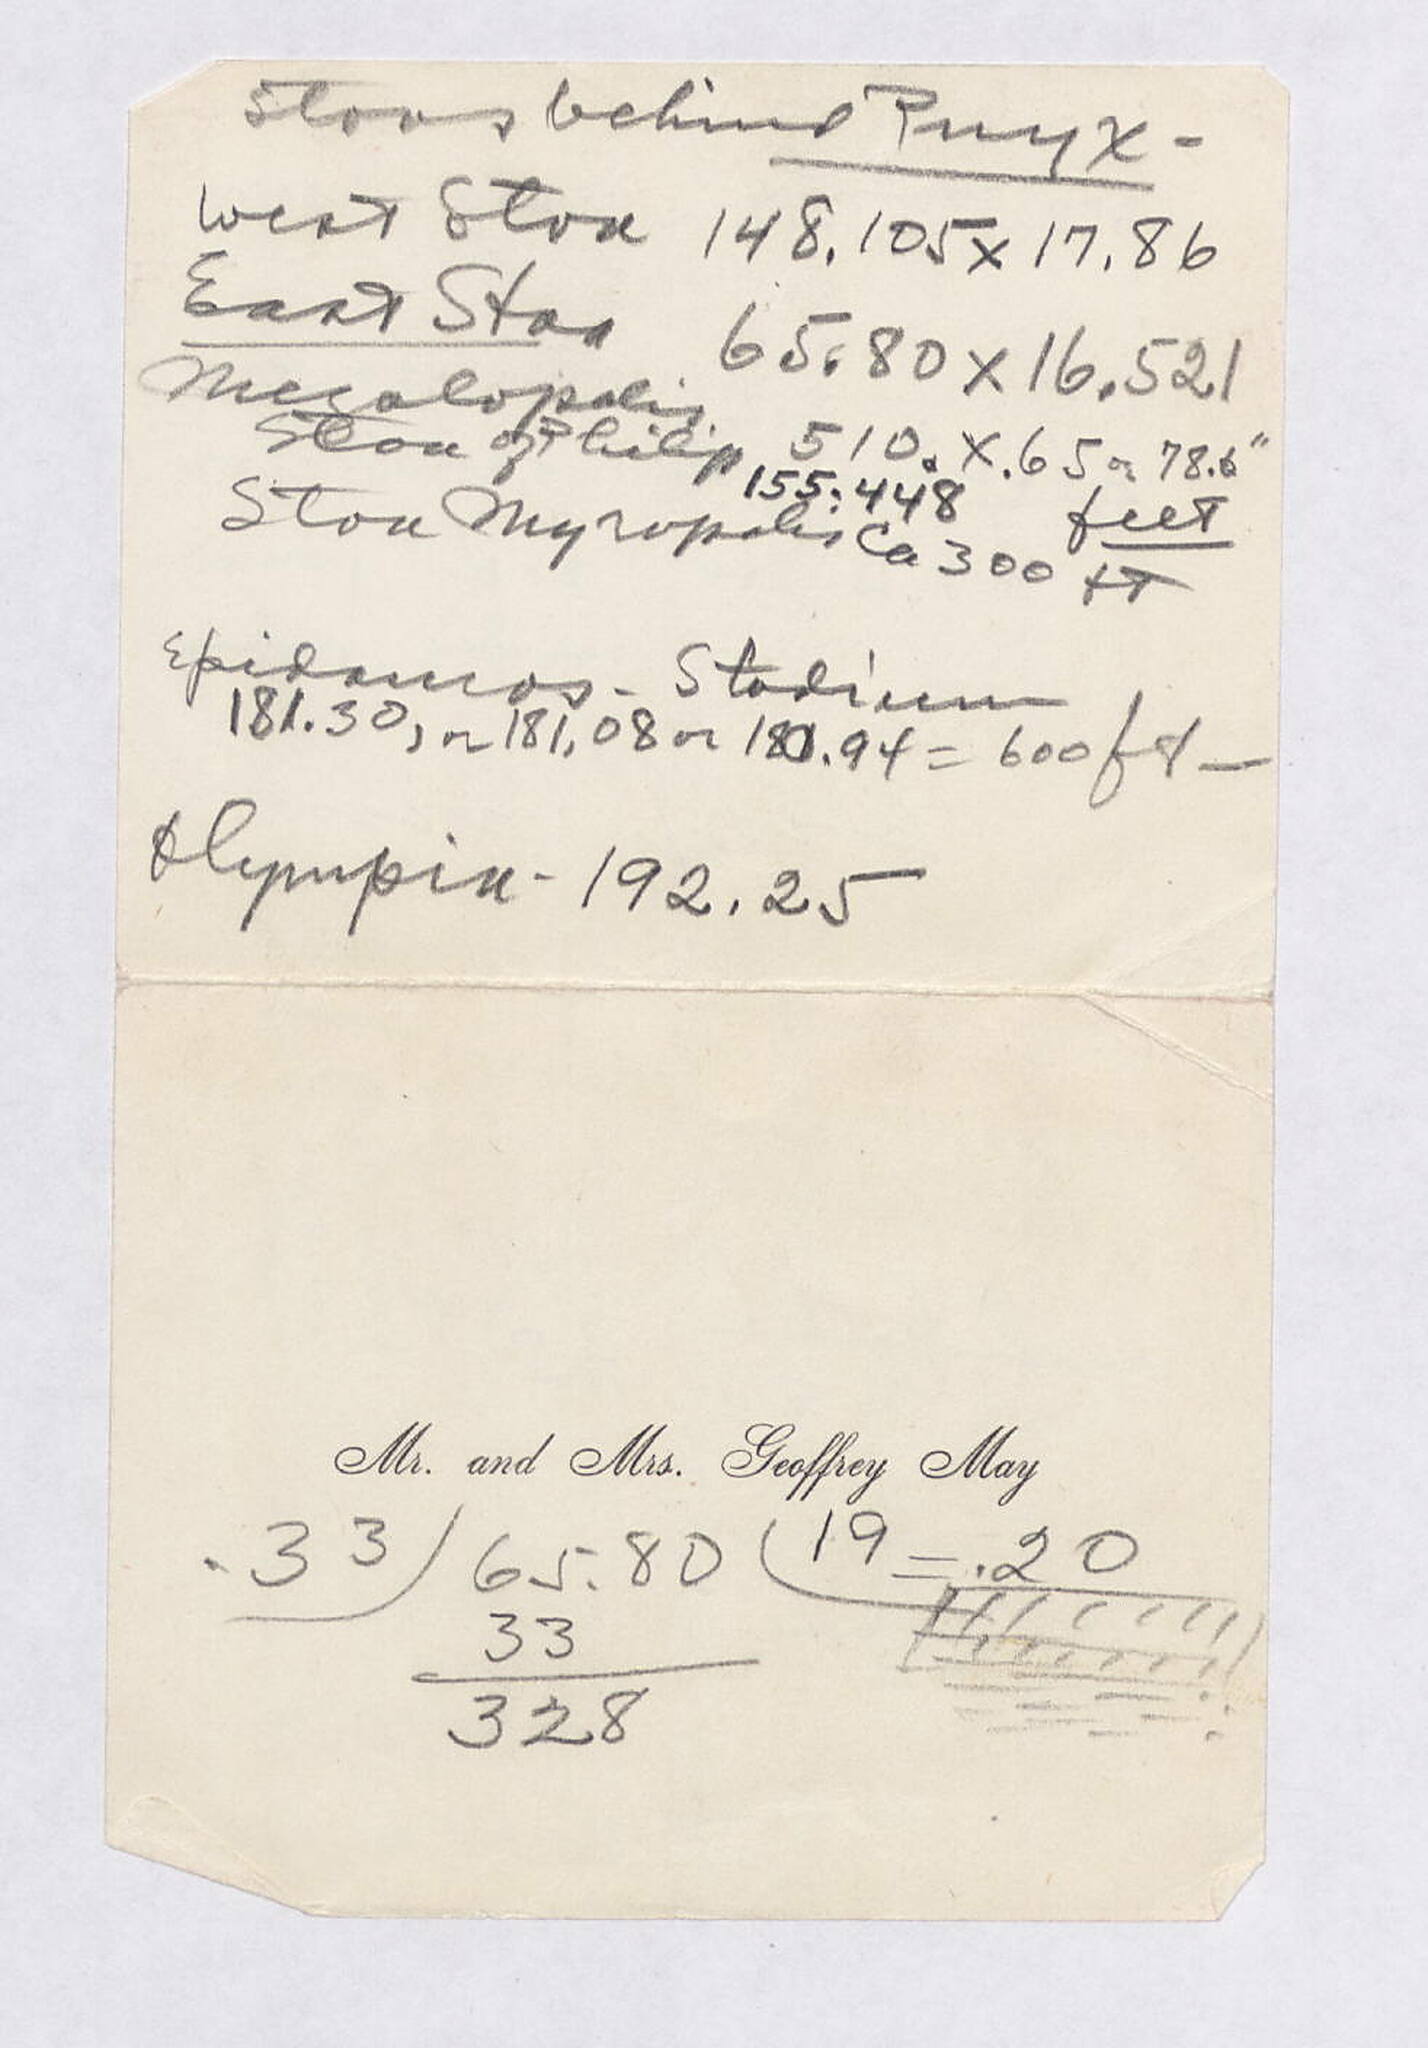 Stoas behind Pnyx -
West Stoa 148.105 x 17.86
East Stoa 65.80 x 16.521
Megalopolis
Stoa of Philip 510. x .65 or 78.6"
155.448 feet
Stoa Myropolis ca 300 ft
Epidauros - Stadium
181.30, or 181.08 or 180.94 = 600 ft -
Olympia - 192.25
Mr. and Mrs. Geoffrey May
.33) 65.80 (19 = .20
33
328